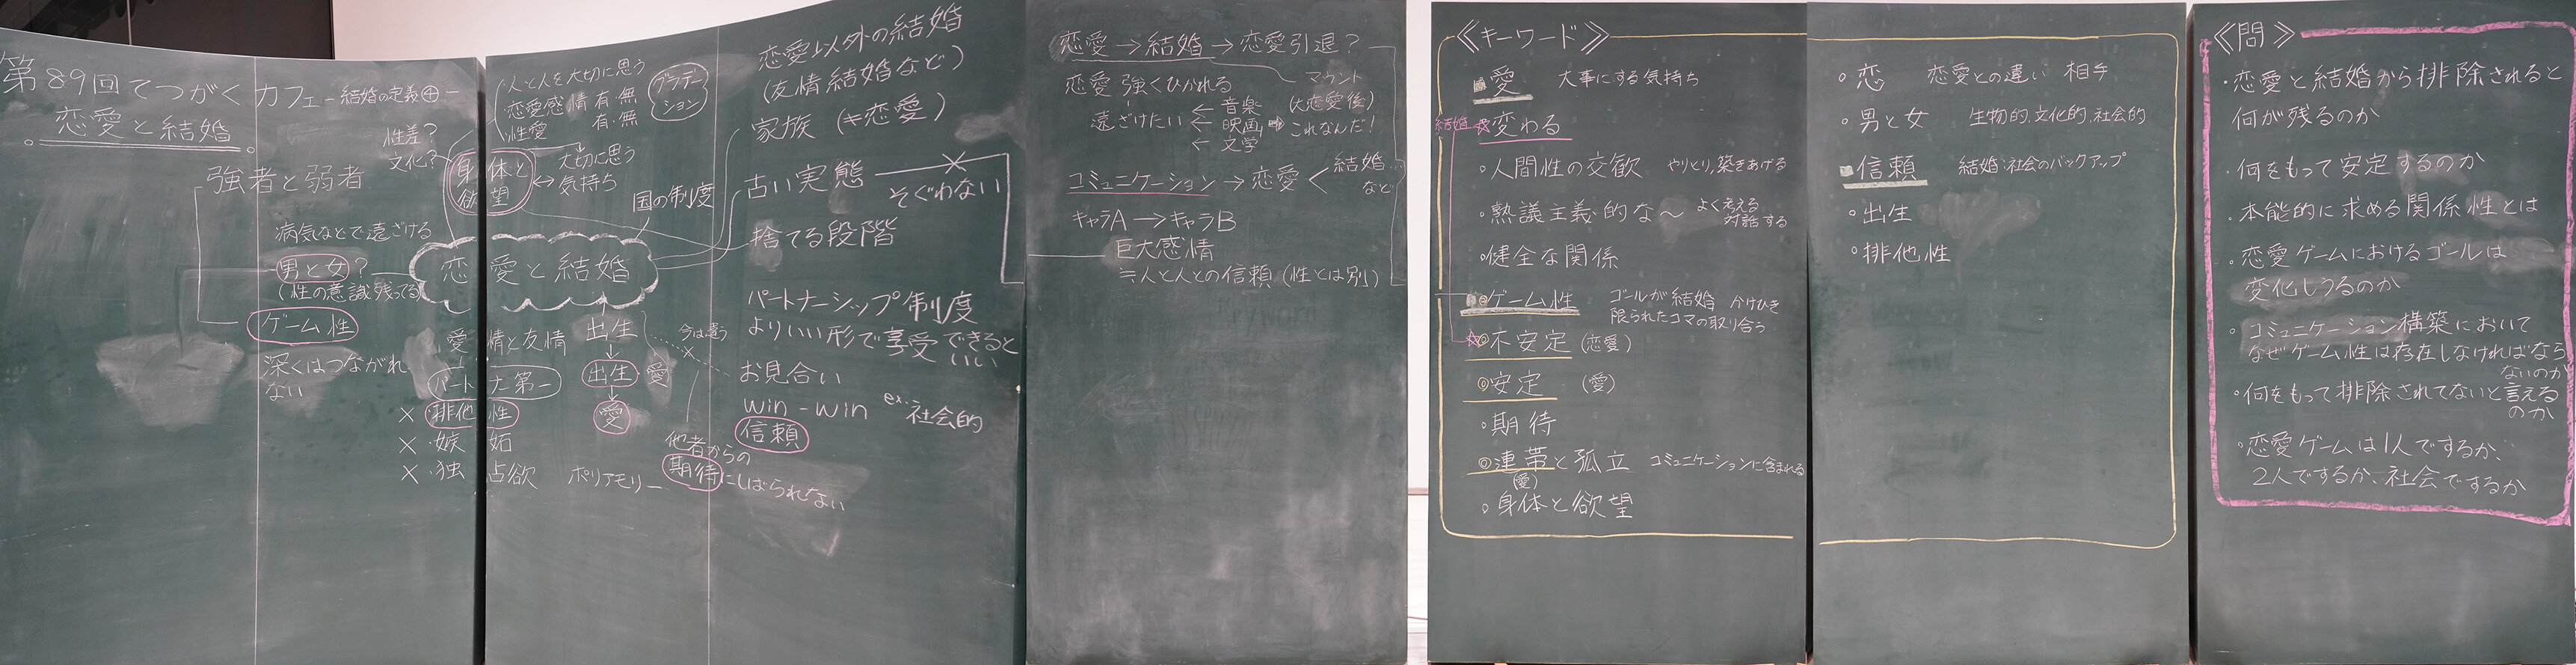 第89回てつがくカフェ ー結婚の定義④ー
恋愛と結婚
強者と弱者
病気などで遠ざける
男と女?
(性の意識残ってる)
ゲーム性
深くはつながれ
ない
性差?
文化?
・人と人を大切に思う
・恋愛感情 有・無
・性愛 有・無
グラデーション
身体と
欲望
↔大切に思う
気持ち
国の制度
恋愛と結婚
愛情と友情
パートナー第一
×・排他性
×・嫉妬
×・独占欲
出生
↓
出生・愛
↓
愛
ポリアモリー
今は違う
×
他者からの
期待にしばられない
恋愛以外の結婚
(友情結婚など)
家族 (≠恋愛)
古い実態 ×
そぐわない
捨てる段階
パートナーシップ制度
よりいい形で享受できると
いい
お見合い
win-win ex.社会的
信頼
恋愛→結婚→恋愛引退?
恋愛 強くひかれる
マウント
(大恋愛後)
これなんだ!
遠ざけたい
← 音楽
← 映画 ⇒
← 文学
コミュニケーション→恋愛<結婚
など
キャラA→キャラB
巨大感情
≒人と人との信頼(性とは別)
《キーワード》
愛 大事にする気持ち
結婚
☆変わる
・人間性の交歓 やりとり,築きあげる
・熟議主義的な〜 よく考える
対話する
・健全な関係
◎ゲーム性 ゴールが結婚 かけひき
限られたコマの取り合う
☆◎不安定 (恋愛)
◎安定 (愛)
・期待
◎連帯と孤立 コミュニケーションに含まれる
(愛)
・身体と欲望
・恋 恋愛との違い 相手
・男と女 生物的,文化的,社会的
信頼 結婚:社会のバックアップ
・出生
・排他性
《問》
・恋愛と結婚から排除されると
何が残るのか
・何をもって安定するのか
・本能的に求める関係性とは
・恋愛ゲームにおけるゴールは
変化しうるのか
・コミュニケーション構築において
なぜゲーム性は存在しなければなら
ないのか
・何をもって排除されてないと言える
のか
・恋愛ゲームは1人でするか、
2人でするか、社会でするか